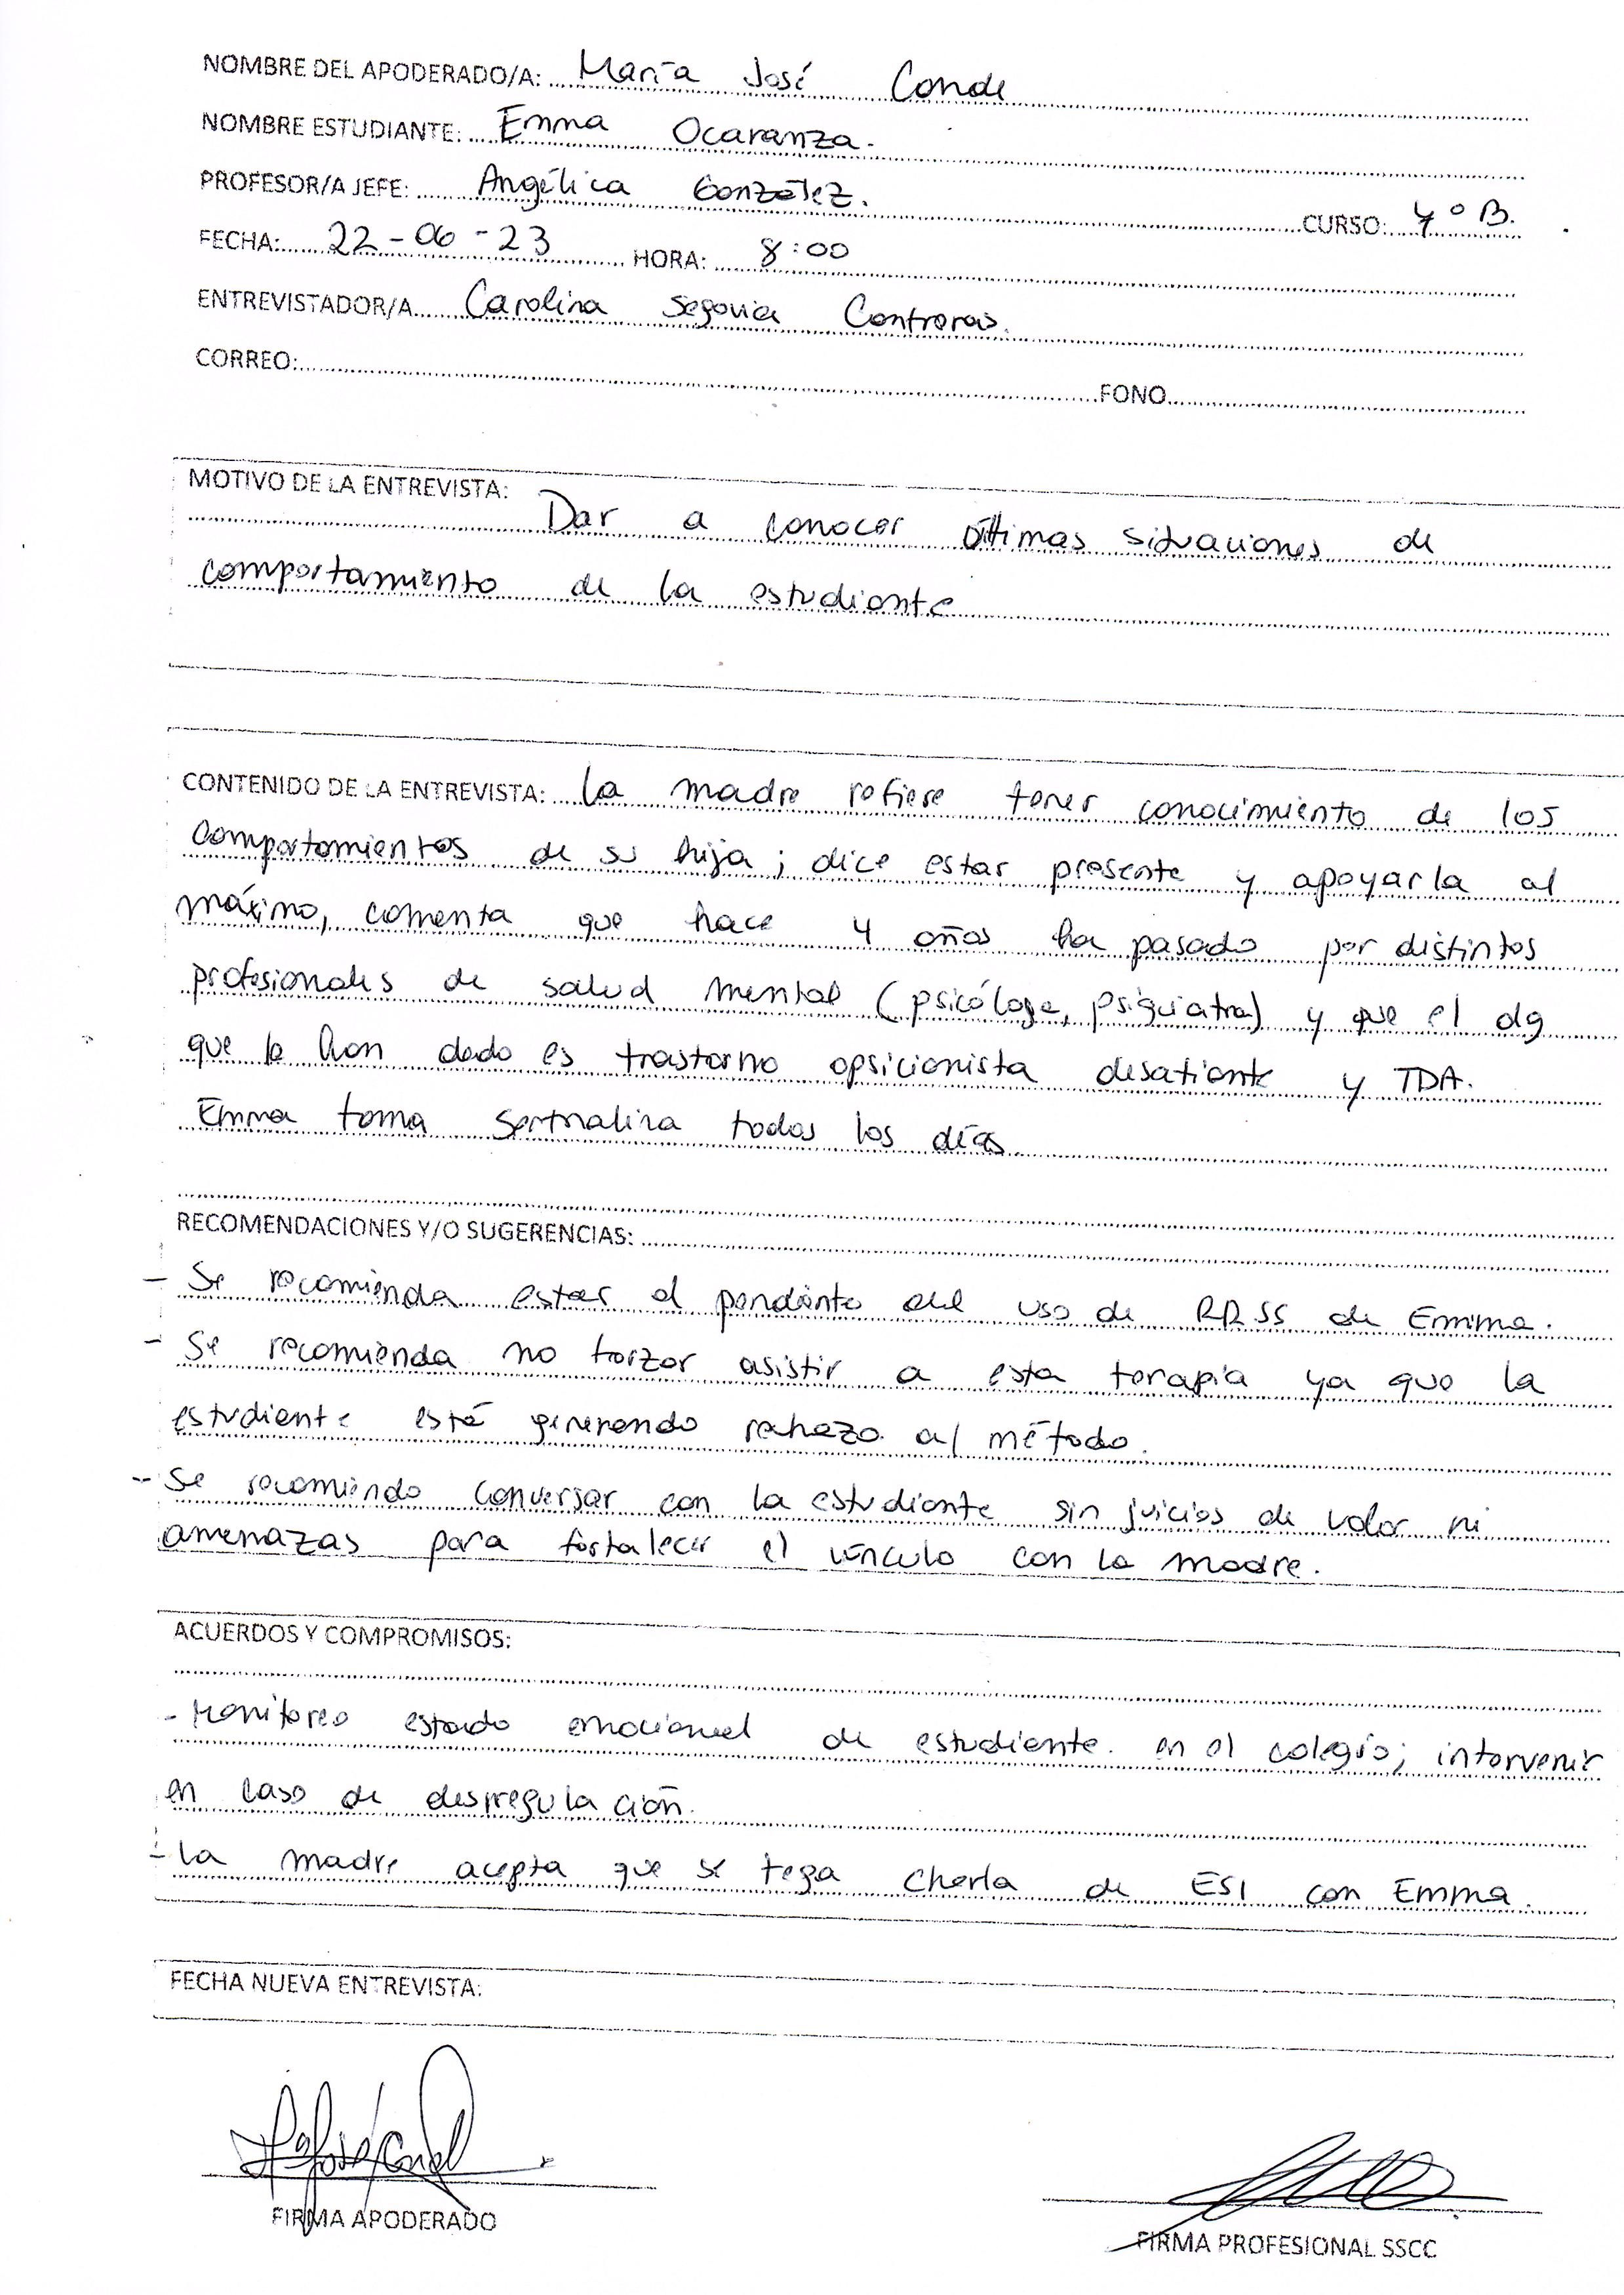 NOMBRE DEL APODERADO/A: María José Conde
NOMBRE ESTUDIANTE: Emma Ocaranza.
PROFESOR/A JEFE: Angélica González.
CURSO: 4° B.
FECHA: 22-06-23 HORA: 8:00
ENTREVISTADOR/A Carolina Segovia Contreras.
CORREO: FONO
MOTIVO DE LA ENTREVISTA:
Dar a conocer últimas situaciones de
comportamiento de la estudiante
CONTENIDO DE LA ENTREVISTA: La madre refiere tener conocimiento de los
comportamientos de su hija; dice estar presente y apoyarla al
máximo, comenta que hace 4 años ha pasado por distintos
profesionales de salud mental (psicóloga, psiquiatra) y que el dg
que le han dado es trastorno opsicionista desafiante y TDA.
Emma toma sertralina todos los días.
RECOMENDACIONES Y/O SUGERENCIAS:
- Se recomienda estar al pendiente del uso de RRSS de Emma.
- Se recomienda no forzar asistir a esta terapia ya que la
estudiante está generando rechazo al método.
- Se recomienda conversar con la estudiante sin juicios de valor ni
amenazas para fortalecer el vínculo con la madre.
ACUERDOS Y COMPROMISOS:
- Monitoreo estado emocional de estudiante. en el colegio; intervenir
en caso de despregulación.
- La madre acepta que se tega charla de ESI con Emma.
FECHA NUEVA ENTREVISTA:
FIRMA APODERADO
FIRMA PROFESIONAL SSCC